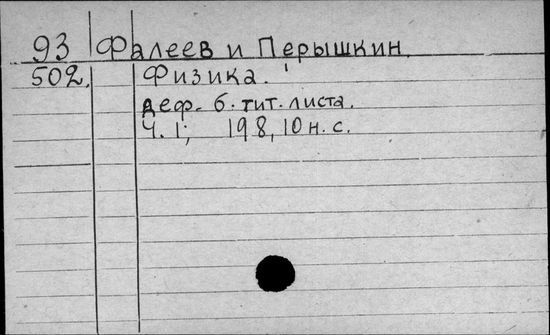 93 Фалеев и Перышкин.
502. Физика.
деф. б. тит. листа.
Ч. 1; 198, 10 н. с.